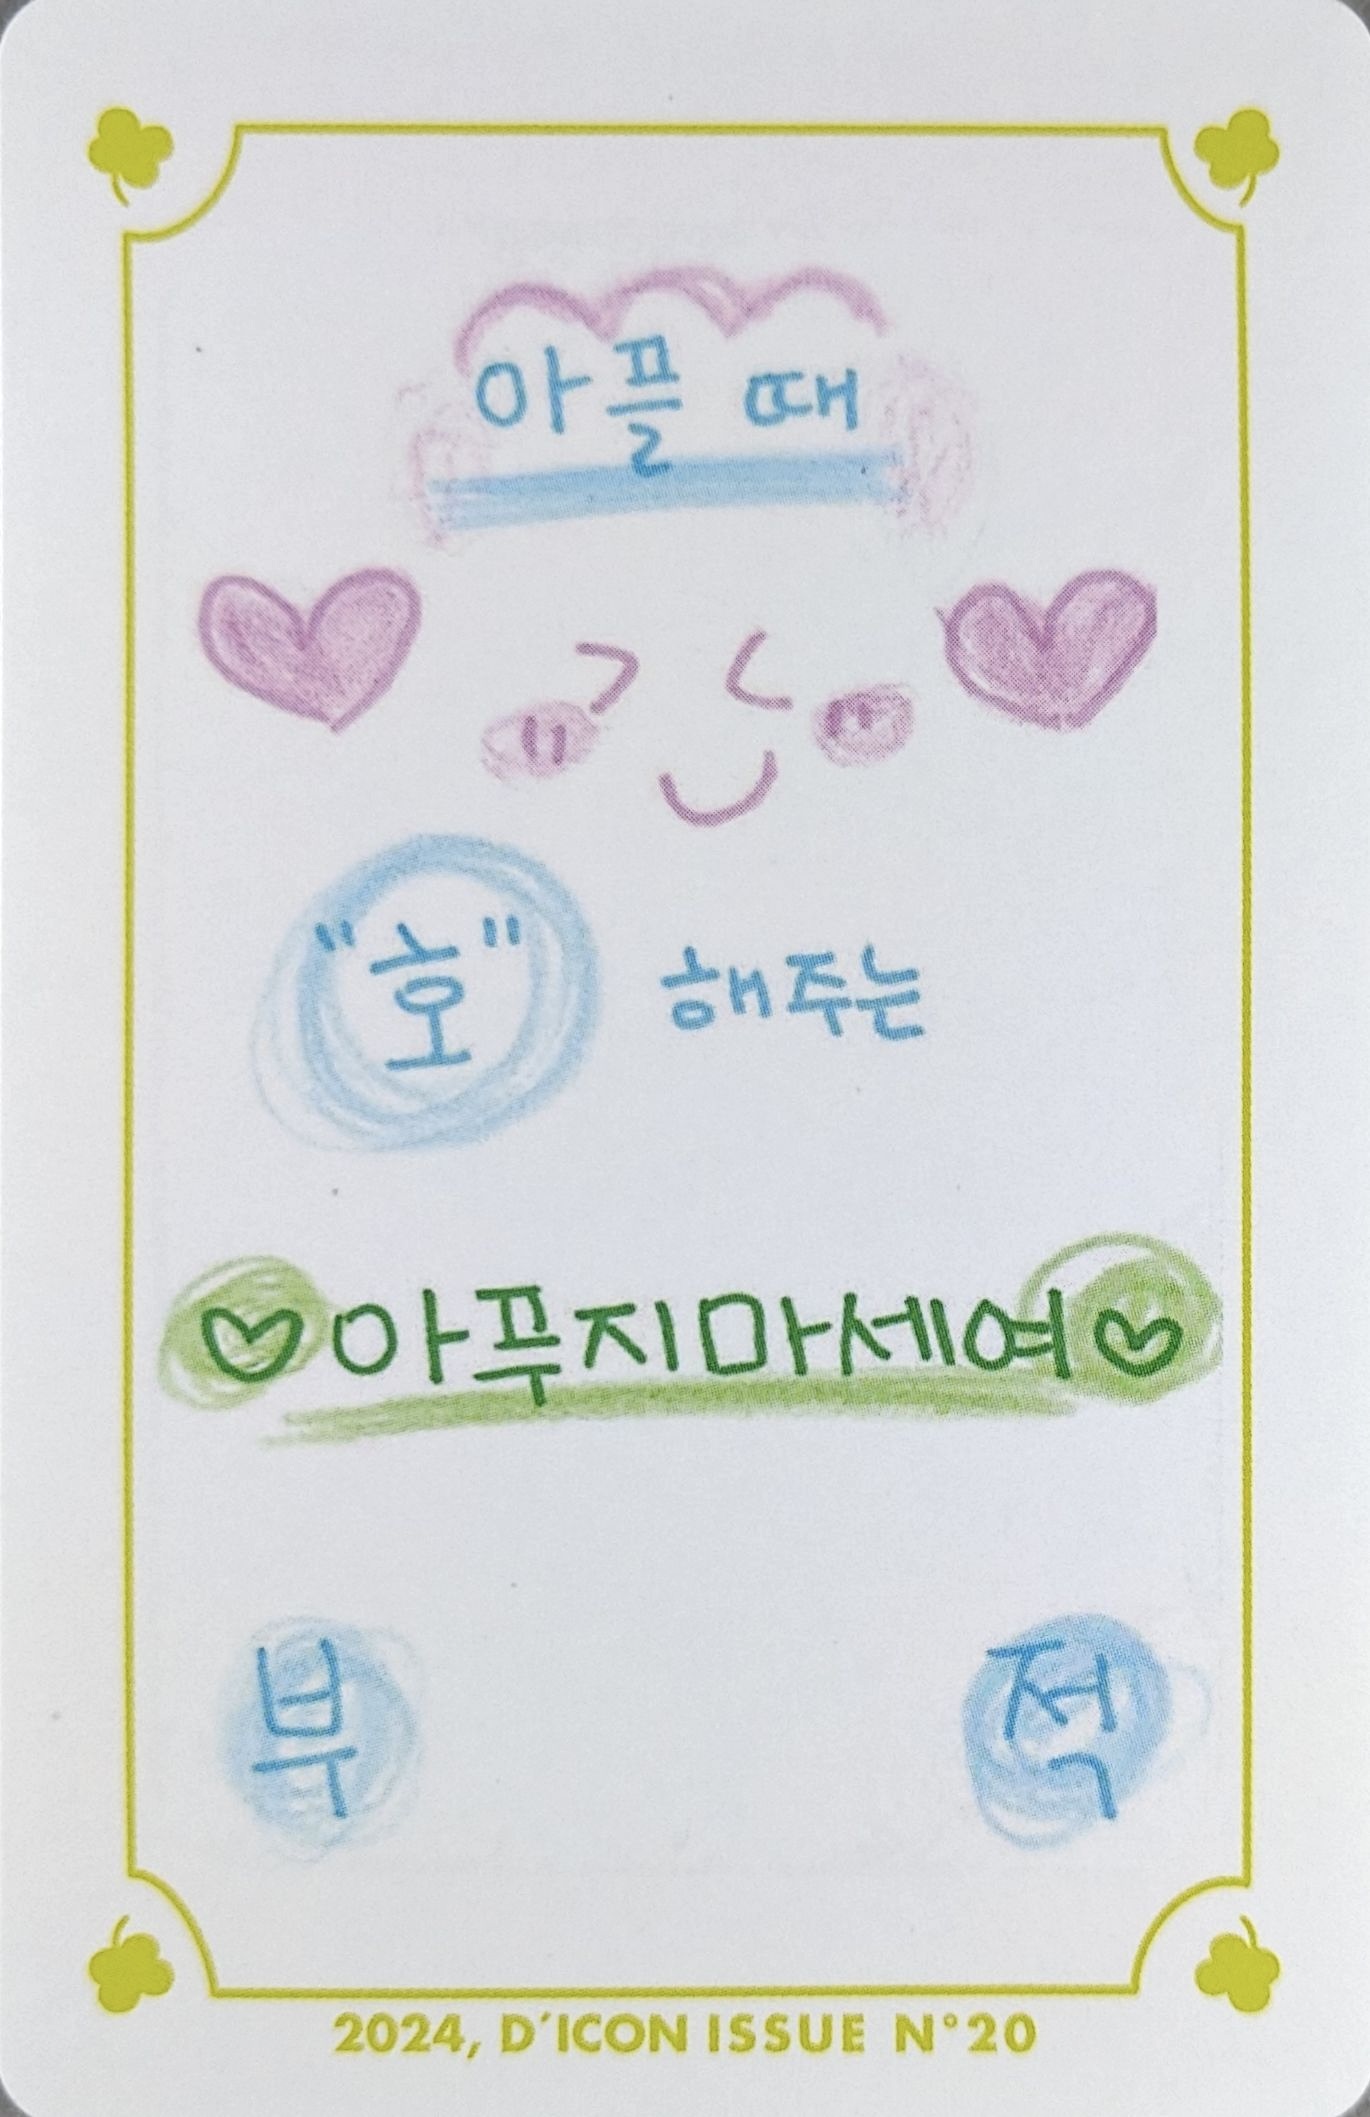 아플 때
"호" 해주는
♡아푸지마세여♡
부 적
2024, D'ICON ISSUE N°20